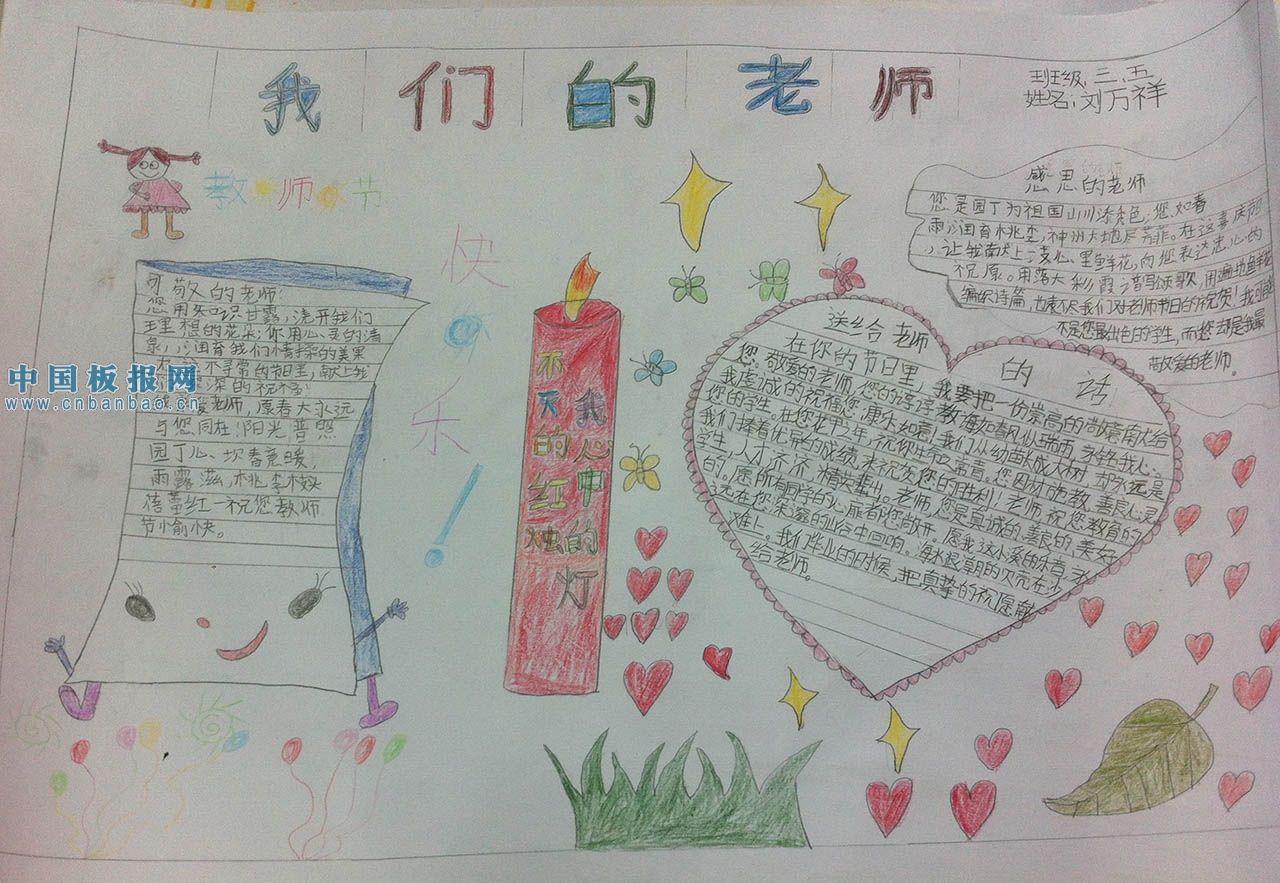 我们的老师
班级:三、五
姓名:刘万祥
教师节
快乐!
敬的老师:
您用知识甘露,浇开我们
理想的花朵;你用心灵的清
泉,润育我们情操的美果
不寻常的 里,献上我
深的祝
老师,愿春天永远
与您同在!阳光普照
园丁心、坎春意暖,
雨露滋桃李
蓓蕾红一祝您教师
节愉快。
中国板报网
www.cnbanbao.cn
我心中的灯
不灭的红烛
感恩的老师
您是园丁为祖国山川添 色;您如春
雨,润育桃李,神州大地尽芳菲。在这喜庆
,让我献上 心里鲜花,向您表达衷心的
祝原。用 彩霞谱写颂歌,用遍地鲜花
编织诗篇,也表 我们对老师节日的祝贺!我可
不是您最出色的学生,而您却是我最
敬爱的老师。
送给老师的话
在你的节日里,我要把一份崇高的 意南犬给
您。敬爱的老师,您的谆谆教诲如春风似瑞雨,永铭我心。
我虔诚的祝福您,康乐如意!我们从幼苗长成大树,却永远是
您的学生。在您花甲之年,祝你生命之 青。您因材施教,善良心灵
我们捧着优异的成绩,来祝贺您的胜利!老师,祝您教育的
学生,人才齐齐,精英辈出。老师,您是真诚的、善良的、美好
的。愿所有同学的心扉都您敞开。愿我这小溪的乐音,永
远在您深邃的山谷中回响。海水退潮的贝壳在沙
难上。我们毕业的时候,把真挚的祝愿献
给老师。